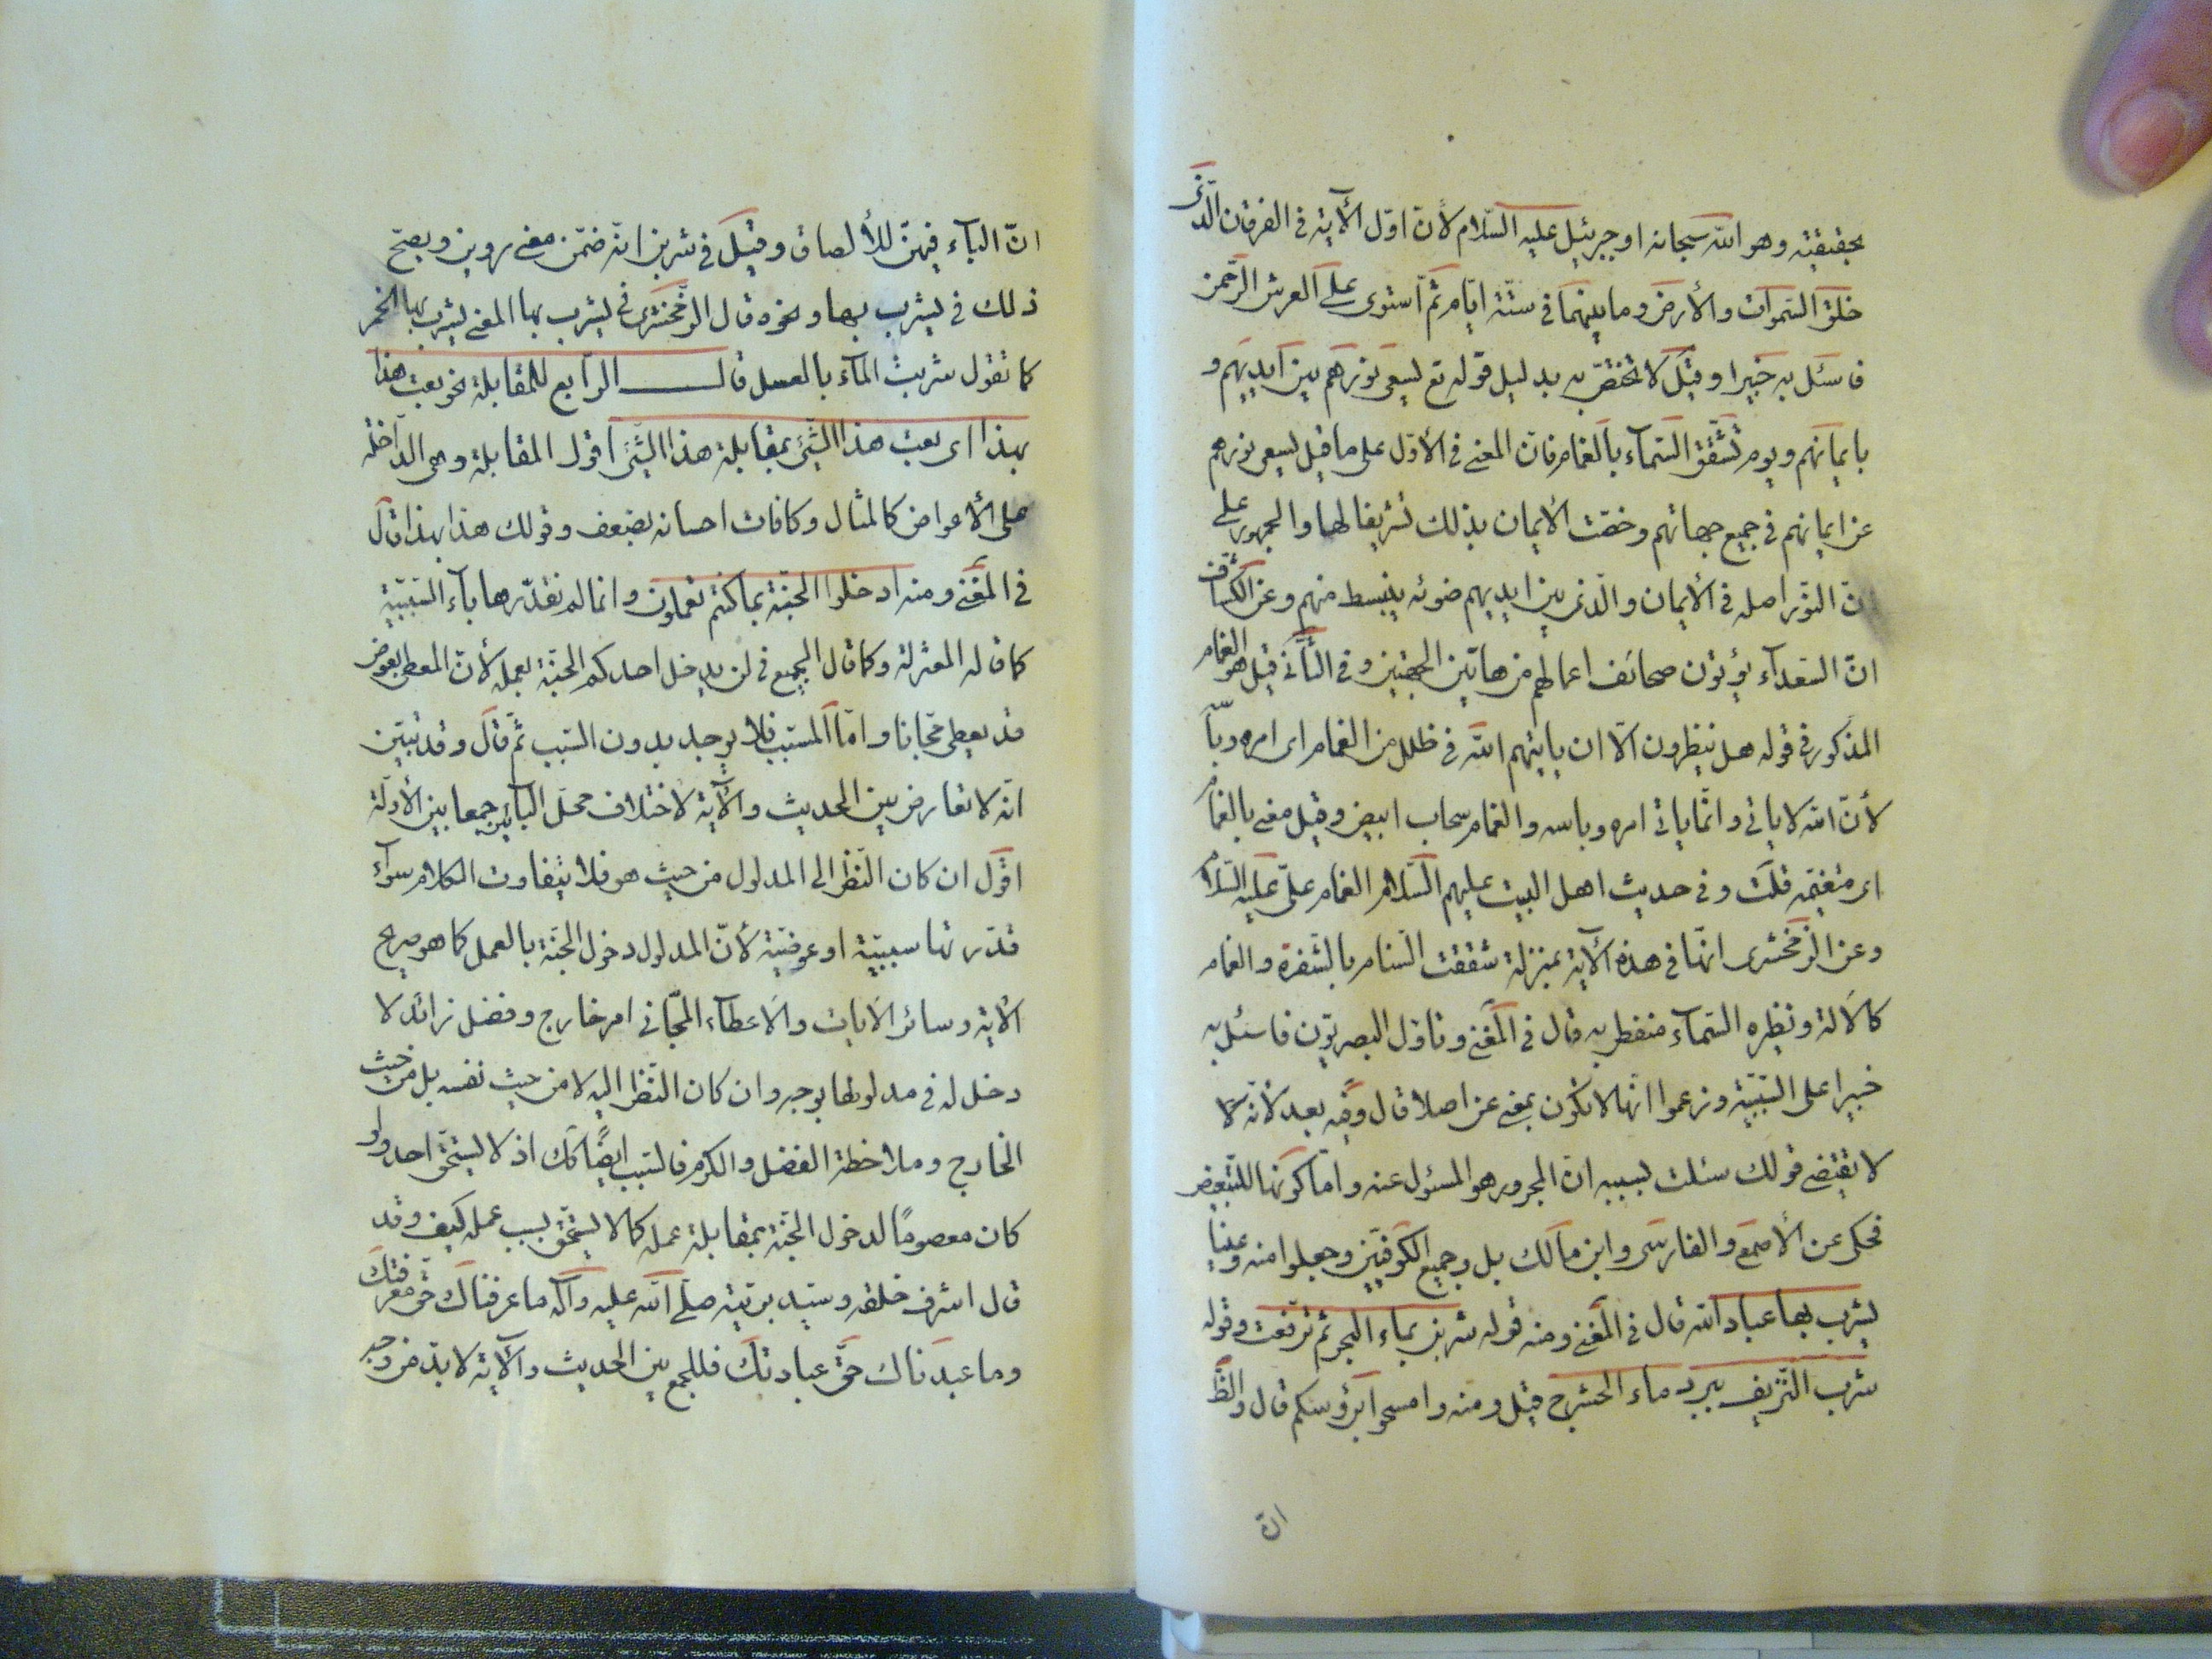 بحقيقته وهو الله سبحانه او جبرئيل عليه السّلام لأنّ اوّل الآية فى الفرقان الّذى
خلق السّموات والأرض وما بينهما فى ستّة ايّام ثمّ استوى على العرش الرّحمن
فاسئل به خبيرا وقيل لا تختصّ به بدليل قوله تع يسعى نورهم بين ايديهم و
بايمانهم ويوم تشقّق السّمآء بالغمام فانّ المعنى فى الأوّل على ما قيل يسعى نورهم
عن ايمانهم فى جميع جهاتهم وخصّت الأيمان بذلك تشريفا لها والجمهور على
انّ النّور اصله فى الأيمان والّذى بين ايديهم ضوئه ينبسط منهم وعن الكشّاف
انّ السّعدآء يؤتون صحائف اعمالهم من هاتين الجهتين وفى الثّانى قيل هو الغمام
المذكور فى قوله هل ينظرون الّا ان يأتيهم الله فى ظلل من الغمام اى امره
لأنّ الله لا ياتى وانّما ياتى امره وباسه والغمام سحاب ابيض وقيل معنى بالغمام
اى متغيّمه قلت وفى حديث اهل البيت عليهم السّلام الغمام علىّ عليه السّلام
وعن الزّمخشرى انّها فى هذه الآية بمنزلة شققت السّنام بالشّفرة والغمام
كالآلة ونظيره السّمآء منفطر به قال فى المغنى وتاوّل البصريّون فاسئل به
خبيرا على السّببيّة وزعموا انّها لا تكون بمعنى عن اصلا قال وفيه بعد لأنّه لا
لا يقتضى قولك سئلت بسببه انّ المجرور هو المسئول عنه وامّا كونها للتّبعيض
فحكى عن الأصمعى والفارسى وابن مالك بل وجميع الكوفيّين وجعلوا منه وعينا
يشرب بها عباد الله قال فى المغنى ومنه قوله شربن بماء البحر ثمّ ترفّعت وقوله
شرب النّزيف ببرد ماء الحشرج قيل ومنه وامسحوا برؤسكم قال والظّ
انّ
انّ البآء فيهنّ للألصاق وقيل فى شربن انّه ضمّن معنى روين ويصحّ
ذلك فى يشرب بها ونحوه قال الزّمخشرى فى يشرب بها المعنى يشرب بها الخمر
كما تقول شربت المآء بالعسل قال الرّابع للمقابلة نحو بعت هذا
بهذا اى بعت هذا الشّئ بمقابلة هذا الشّئ اقول المقابلة وهى الدّاخلة
على الأعواض كالمثال وكافات احسانه بضعف وقولك هذا بهذا قال
فى المغنى ومنه ادخلوا الجنّة بما كنتم تعملون وانما لم نقدّرها بآء السّببيّة
كما قاله المعتزلة وكما قال الجميع فى لن يدخل احدكم الجنّة بعمله لأنّ المعطى بعوض
قد يعطى مجّانا وامّا المسبّب فلا يوجد بدون السّبب ثمّ قال وقد تبيّن
انّه لا تعارض بين الحديث والآية لاختلاف محمل البآءين جمعا بين الأدلّة
اقول ان كان النّظر الى المدلول من حيث هو فلا يتفاوت الكلام سوآء
قدّرتها سببيّة او عوضيّة لأنّ المدلول دخول الجنّة بالعمل كما هو صريح
الآية وسائر الآيات والأعطآء المجّانى امر خارج وفضل زائد لا
دخل له فى مدلولها بوجه وان كان النّظر اليه لا من حيث نفسه بل من حيث
الخارج وملاحظة الفضل والكرم فالسّبب ايضًا كك اذ لا يستحقّ احد ولو
كان معصومًا لدخول الجنّة بمقابلة عمله كما لا يستحقّ بسبب عمله كيف وقد
قال اشرف خلقه وسيّد بريّته صلّى الله عليه وآله ما عرفناك حقّ معرفتك
وما عبدناك حقّ عبادتك فللجمع بين الحديث والآية لا بدّ من وجه